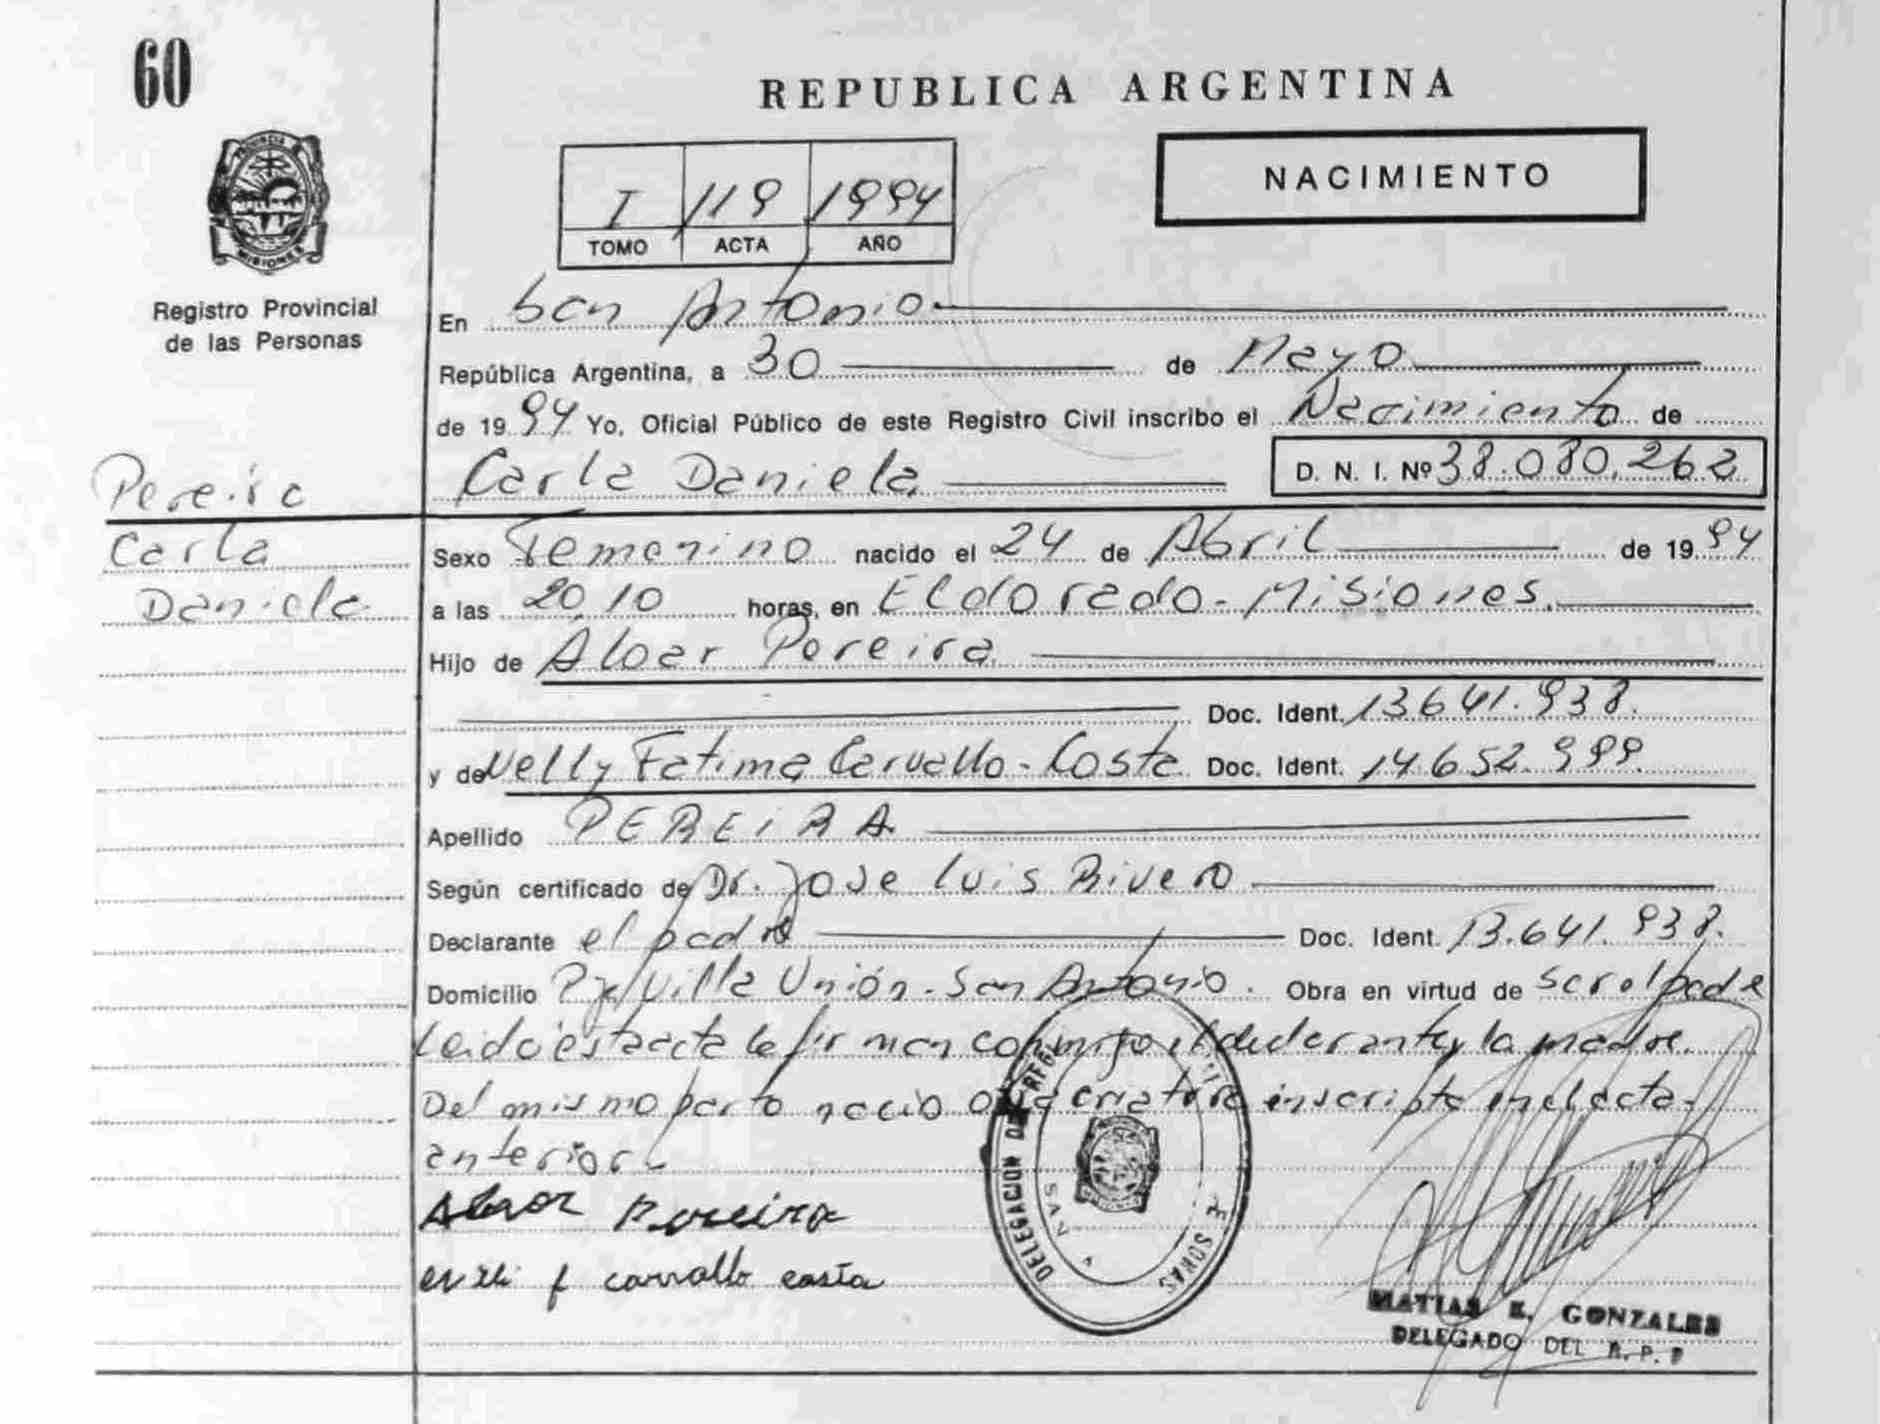 60
REPUBLICA ARGENTINA
PROVINCIA DE
MISIONES
Registro Provincial
de las Personas
I 119 1994
TOMO ACTA AÑO
NACIMIENTO
En San Antonio
República Argentina, a 30 de Mayo
de 1994 Yo, Oficial Público de este Registro Civil inscribo el Nacimiento de
Carla Daniela D. N. I. Nº 38.080.262
Pereira
Carla
Daniela
Sexo Femenino nacido el 24 de Abril de 1994
a las 20 10 horas, en Eldorado - Misiones.
Hijo de Álbar Pereira
Doc. Ident. 13.641.938.
y de Nelly Fatima Carvallo - Costa Doc. Ident. 14.652.999.
Apellido PEREIRA
Según certificado de Dr. Jose Luis Rivero
Declarante el padre Doc. Ident. 13.641.938.
Domicilio Pje Villa Unión - San Antonio. Obra en virtud de ser el padre
Leido esta acta la firman conmigo el declarante y la madre.
Del mismo parto nacio otra criatura inscripta en el acta
anterior
Albar Pereira
f carvallo costa
DELEGACION DE REG
SAN
SONAS
MATIAS E. GONZALES
DELEGADO DEL R. P. P